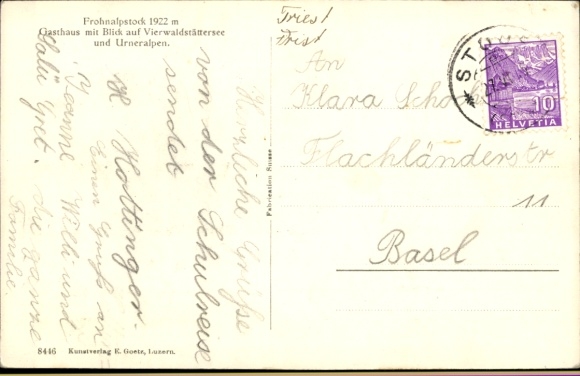 Frohnalpstock 1922 m
Gasthaus mit Blick auf Vierwaldstättersee
und Urneralpen.
Herzliche Grüße
von der Schulreise
sendet
H Hottinger.
Einen Gruss an
Jeanne Willi und
Salü Gnt. die ganze
Familie.
8446 Kunstverlag E. Goetz, Luzern.
Fabrication Suisse
An
Klara
Flachländerstr
11
Basel
10
HELVETIA